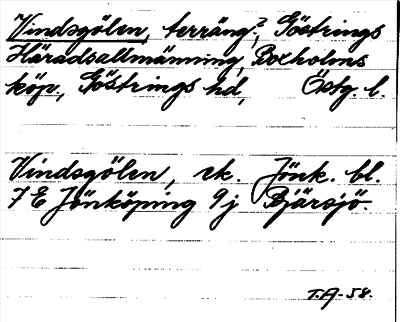 Vindsgölen, terräng?, Göstrings
Häradsallmänning, Boxholms
köp., Göstrings hd, Östg. l.
Vindsgölen, ek. Jönk. bl.
7 E Jönköping 9j Bjärsjö.
T.A-58.